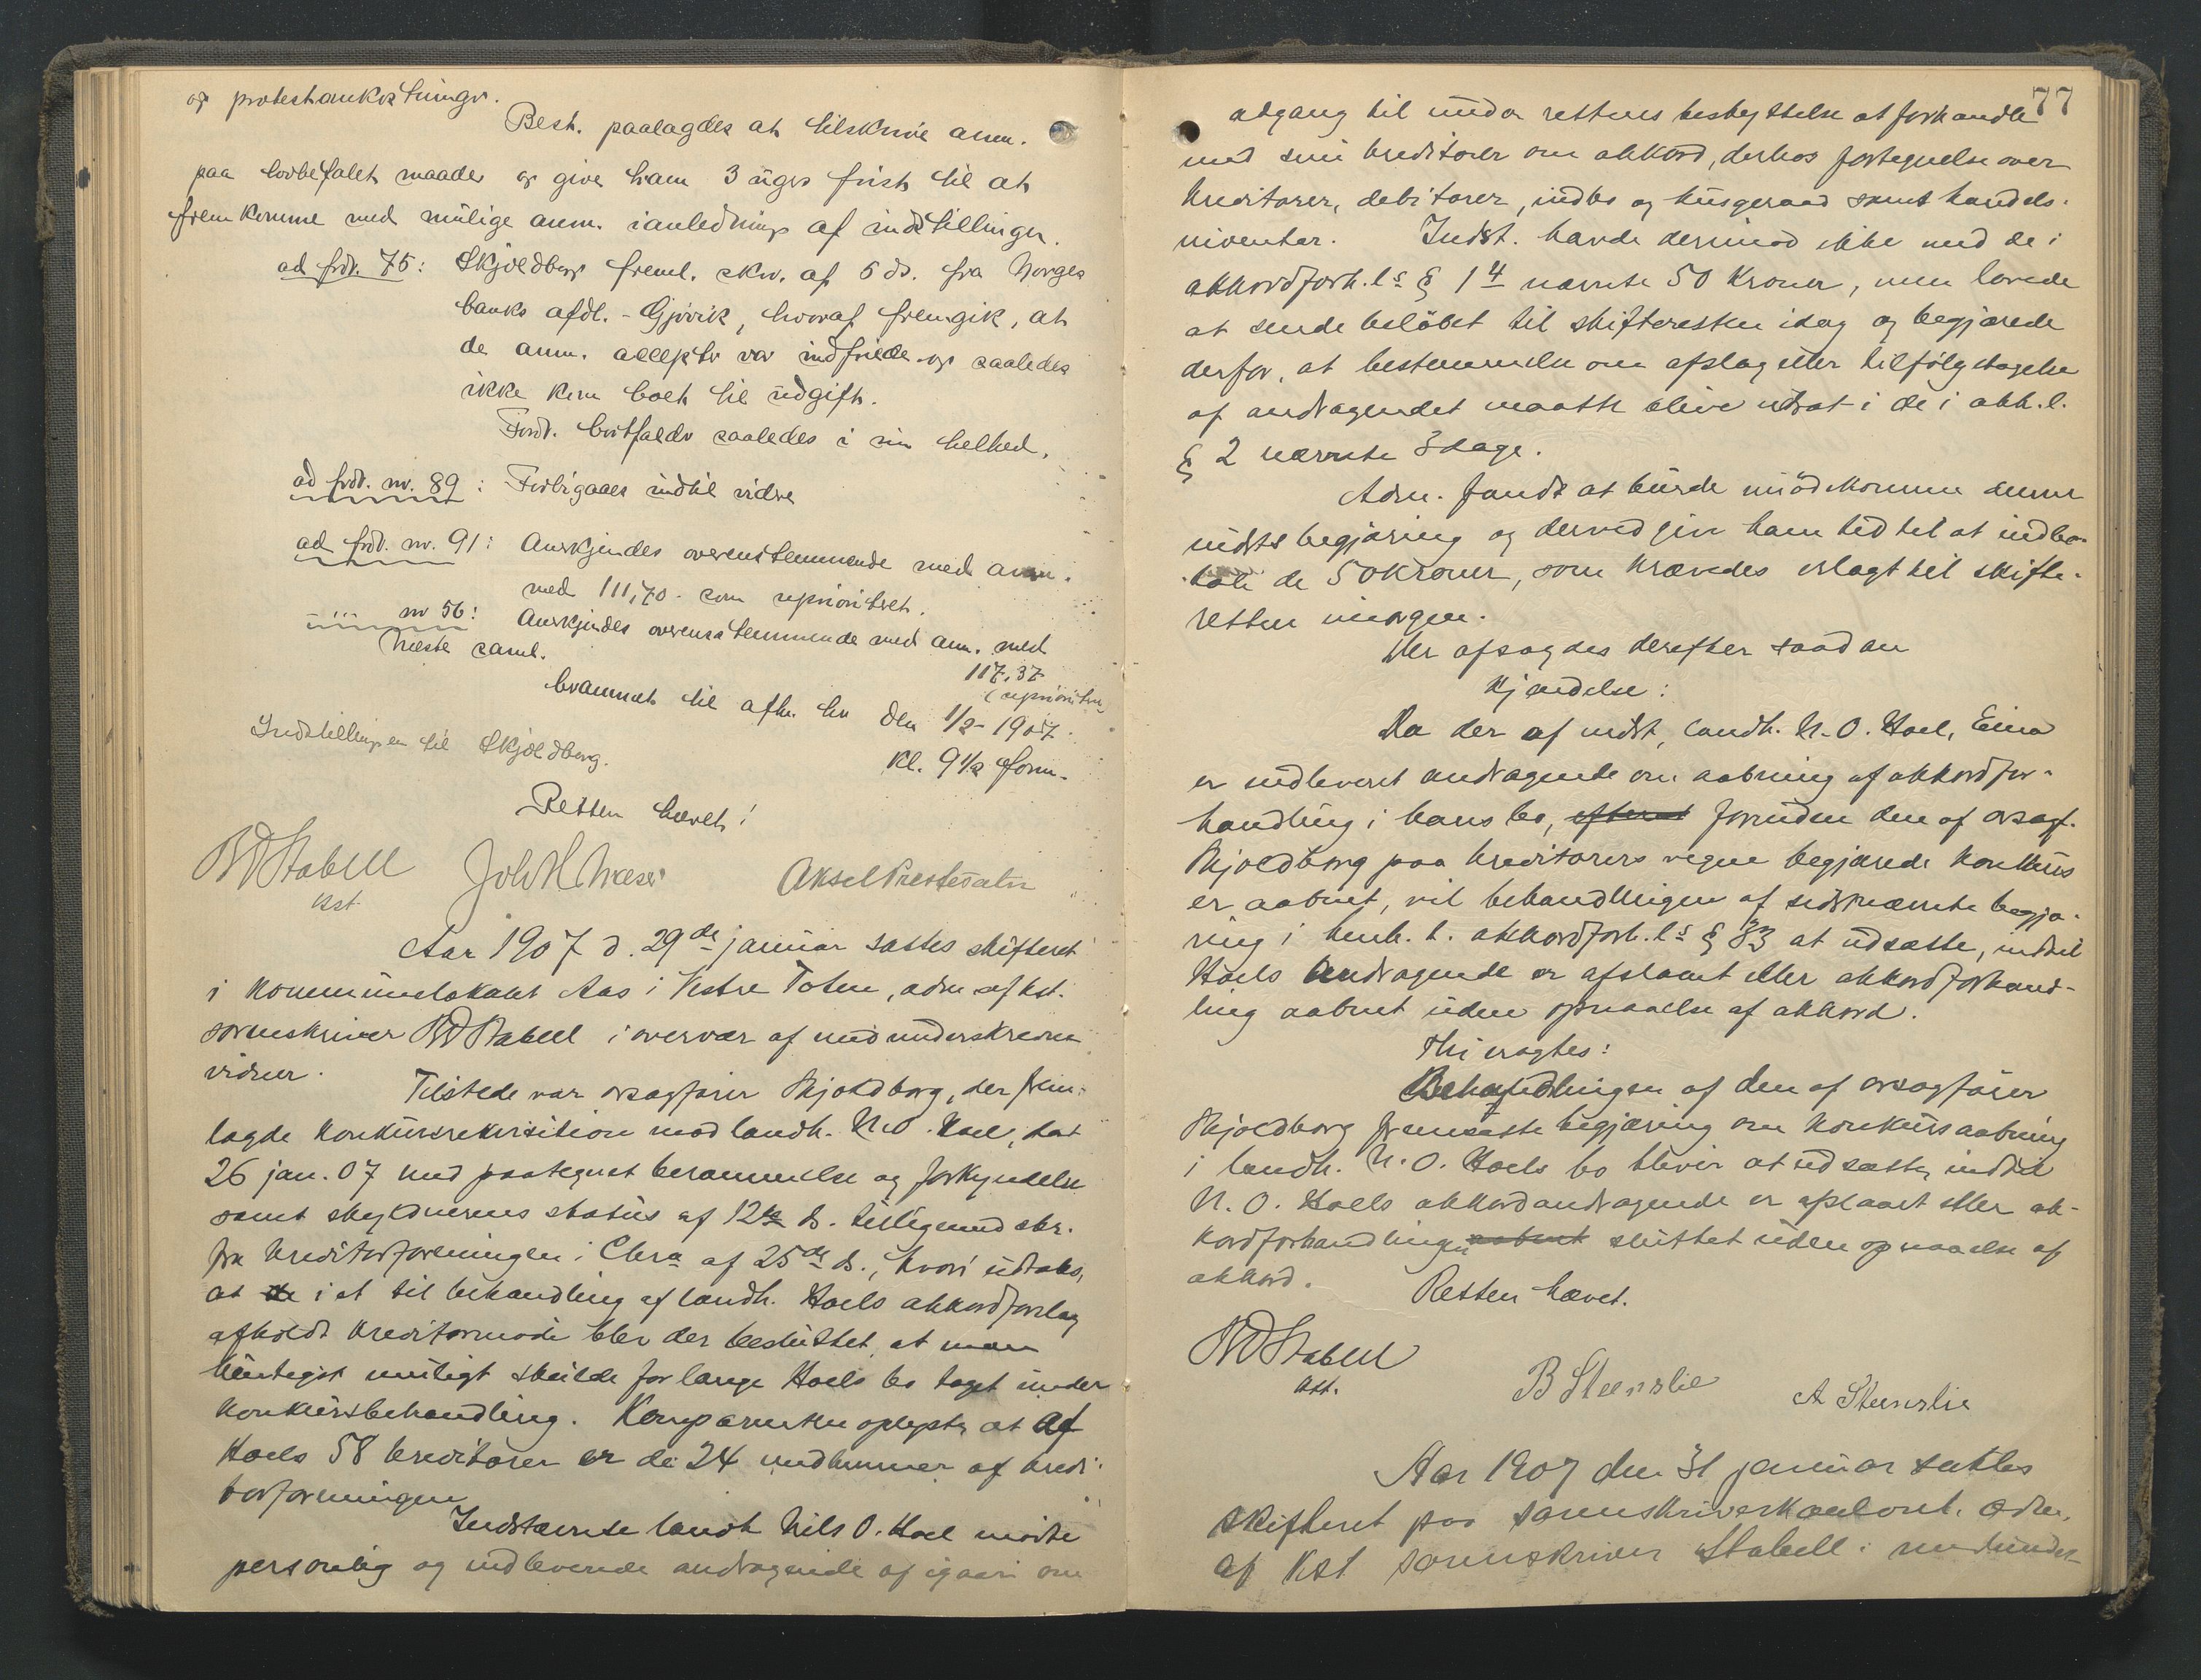 og protestomkostninger.
Best. paalagdes at tilskrive anm.
paa lovbefalet maade og give ham 3 ugers frist til at
fremkomme med mulige anm. i anledning af indstillingen.
ad fodr. 75: Skjoldborg freml. skr. af 5 ds. fra Norges
banks afdl. - Gjövik, hvoraf fremgik, at
de anm. accepter var indfriede og saaledes
ikke kom boet til udgift.
Fodr. bortfalder saaledes i sin helhed.
ad fodr. nr. 89: Forbigaaes indtil videre
ad fodr. nr. 91: Anerkjendes overenstemmende med anm.
med 111,70 som uprioritert.
nr 56: Anerkjendes overensstemmende med anm. med
117,37
uprioritert
Næste saml.
berammet til afh. her den 1/2 - 1907.
kl. 9 1/2 form.
Indstillingen til Skjoldborg.
Retten hævet!
BD Stabell
kst.
Joh H Næser
Aksel Præstesæter
Aar 1907 d. 29de januar sattes skifteret
i kommunelokalet Aas i Vestre Toten, adm af kst.
sorenskriver BD Stabell i overvær af medunderskrevne
vidner.
Tilstede var orsagfører Skjoldborg, der frem-
lagde konkursrekvisition mod landh. N. O. Hoel, dat
26 jan. 07 med paategnet berammelse og forkyndelse
samt skyldnerens status af 12te ds. tilligemed skr.
fra kreditorforeningen i Chra af 25de ds., hvori udtales,
at de i et til behandling af landh. Hoels akkordforslag
afholdt kreditormøde blev der besluttet, at man
hurtigst muligt skulde forlange Hoels bo taget under
konkursbehandling. Komparenten oplyste, at af
Hoels 58 kreditorer er de 24 medlemmer af kredi-
torforeningen
Indstævnte landh Nils O. Hoel mødte
personlig og indleverede andragende af igaar om
77
adgang til under rettens beskyttelse at forhandle
med sine kreditorer om akkord, derhos fortegnelse over
kreditorer, debitorer, indbo og husgeraad samt handels-
inventar. Indst. havde derimod ikke med de i
akkordforh. ls § 1 4 nævnte 50 kroner, men lovede
at sende beløbet til skifteretten idag og begjærede
derfor, at bestemmelse om afslag eller tilfølgetagelse
af andragendet maatte blive udsat i de i akk. l.
§ 2 nævnte 3 dage.
Adm. fandt at burde imødekomme denne
indsts begjæring og derved give ham tid til at indbe-
tale de 50 kroner, som krævedes erlagt til skifte-
retten imorgen.
Der afsagdes derefter saadan
kjendelse:
Da der af indst, landh. N. O. Hoel, Eina
er indleveret andragende om aabning af akkordfor-
handling i hans bo, efterat forinden den af orsagf.
Skjoldborg paa kreditorers vegne begjærede konkurs
er aabnet, vil behandlingen af sidstnævnte begjæ-
ring i henh. t. akkordforh. ls § 33 at udsætte, indtil
Hoels andragende er afslaaet eller akkordforhand-
ling aabnet uden opnaaelse af akkord.
Thi eragtes:
Behandlingen af den af orsagfører
Skjoldborg fremsatte begjæring om konkursaabning
i landh. N. O. Hoels bo bliver at udsætte, indtil
N. O. Hoels akkordandragende er afslaaet eller ak-
kordforhandlingen aabnet sluttet uden opnaaelse af
akkord.
Retten hævet.
BD Stabell
kst.
B Steenslie
A Steenslie
Aar 1907 den 31 januar sattes
skifteret paa sorenskriverkontoret, adm.
af kst sorenskriver Stabell i medunder-